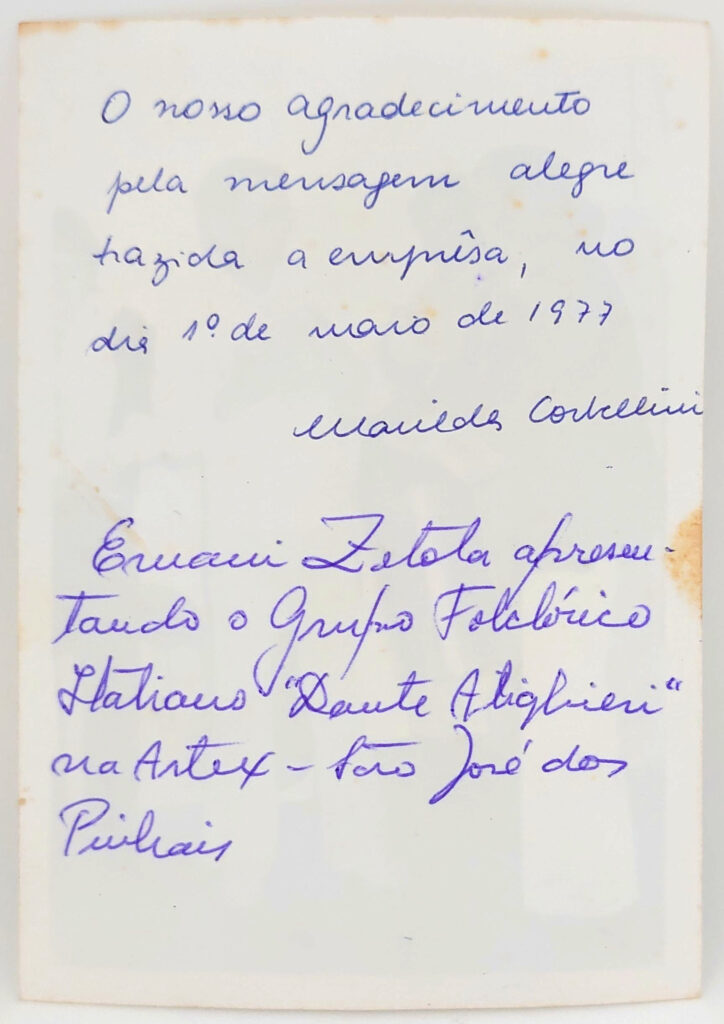 O nosso agradecimento
pela mensagem alegre
trazida a emprêsa, no
dia 1º de maio de 1977
Marilda Corbellini
Ernani Zetola apresen-
tando o Grupo Folclórico
Italiano "Dante Alighieri"
na Artex - São José dos
Pinhais